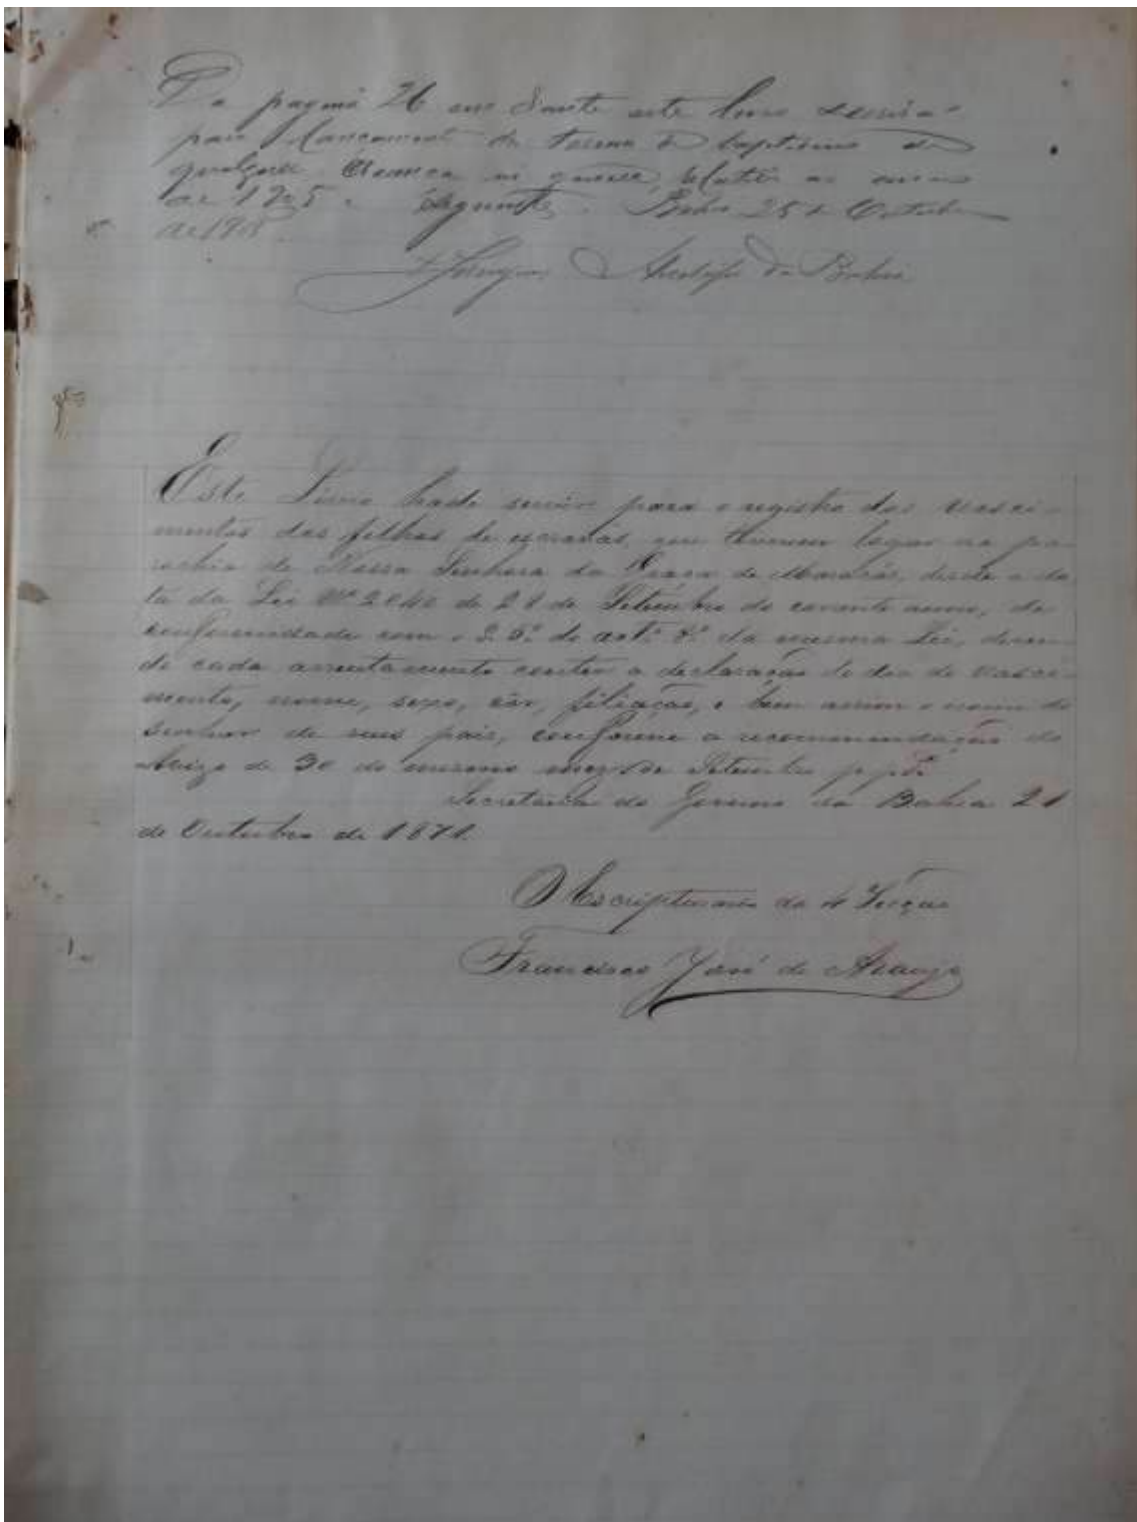 Da pagina 26 em diante este livro servirá
para lançamento de termos de baptismo de
qualquer creança
de 1905. Bahia 25 de Outubro
de 1905.
Arcebispo da Bahia
Este Livro hade servir para o registro dos nasci-
mentos dos filhos de escravas, que tiverem lugar na pa-
rochia de Nossa Senhora da Graça de Maracás, desde a da-
ta da Lei Nº 2040 de 28 de Setembro do corrente anno, de
conformidade com o § 5º do artº 8º da mesma Lei, deven-
do cada assentamento conter a declaração do dia do nasci-
mento, nome, sexo, côr, filiação, e bem assim o nome do
senhor de seus pais, conforme a recommendação do
Aviso de 30 do mesmo mez de Setembro
Secretaria do Governo da Bahia 21
de Outubro de 1871.
O Escripturario da 4 Secção
Francisco José de Araujo